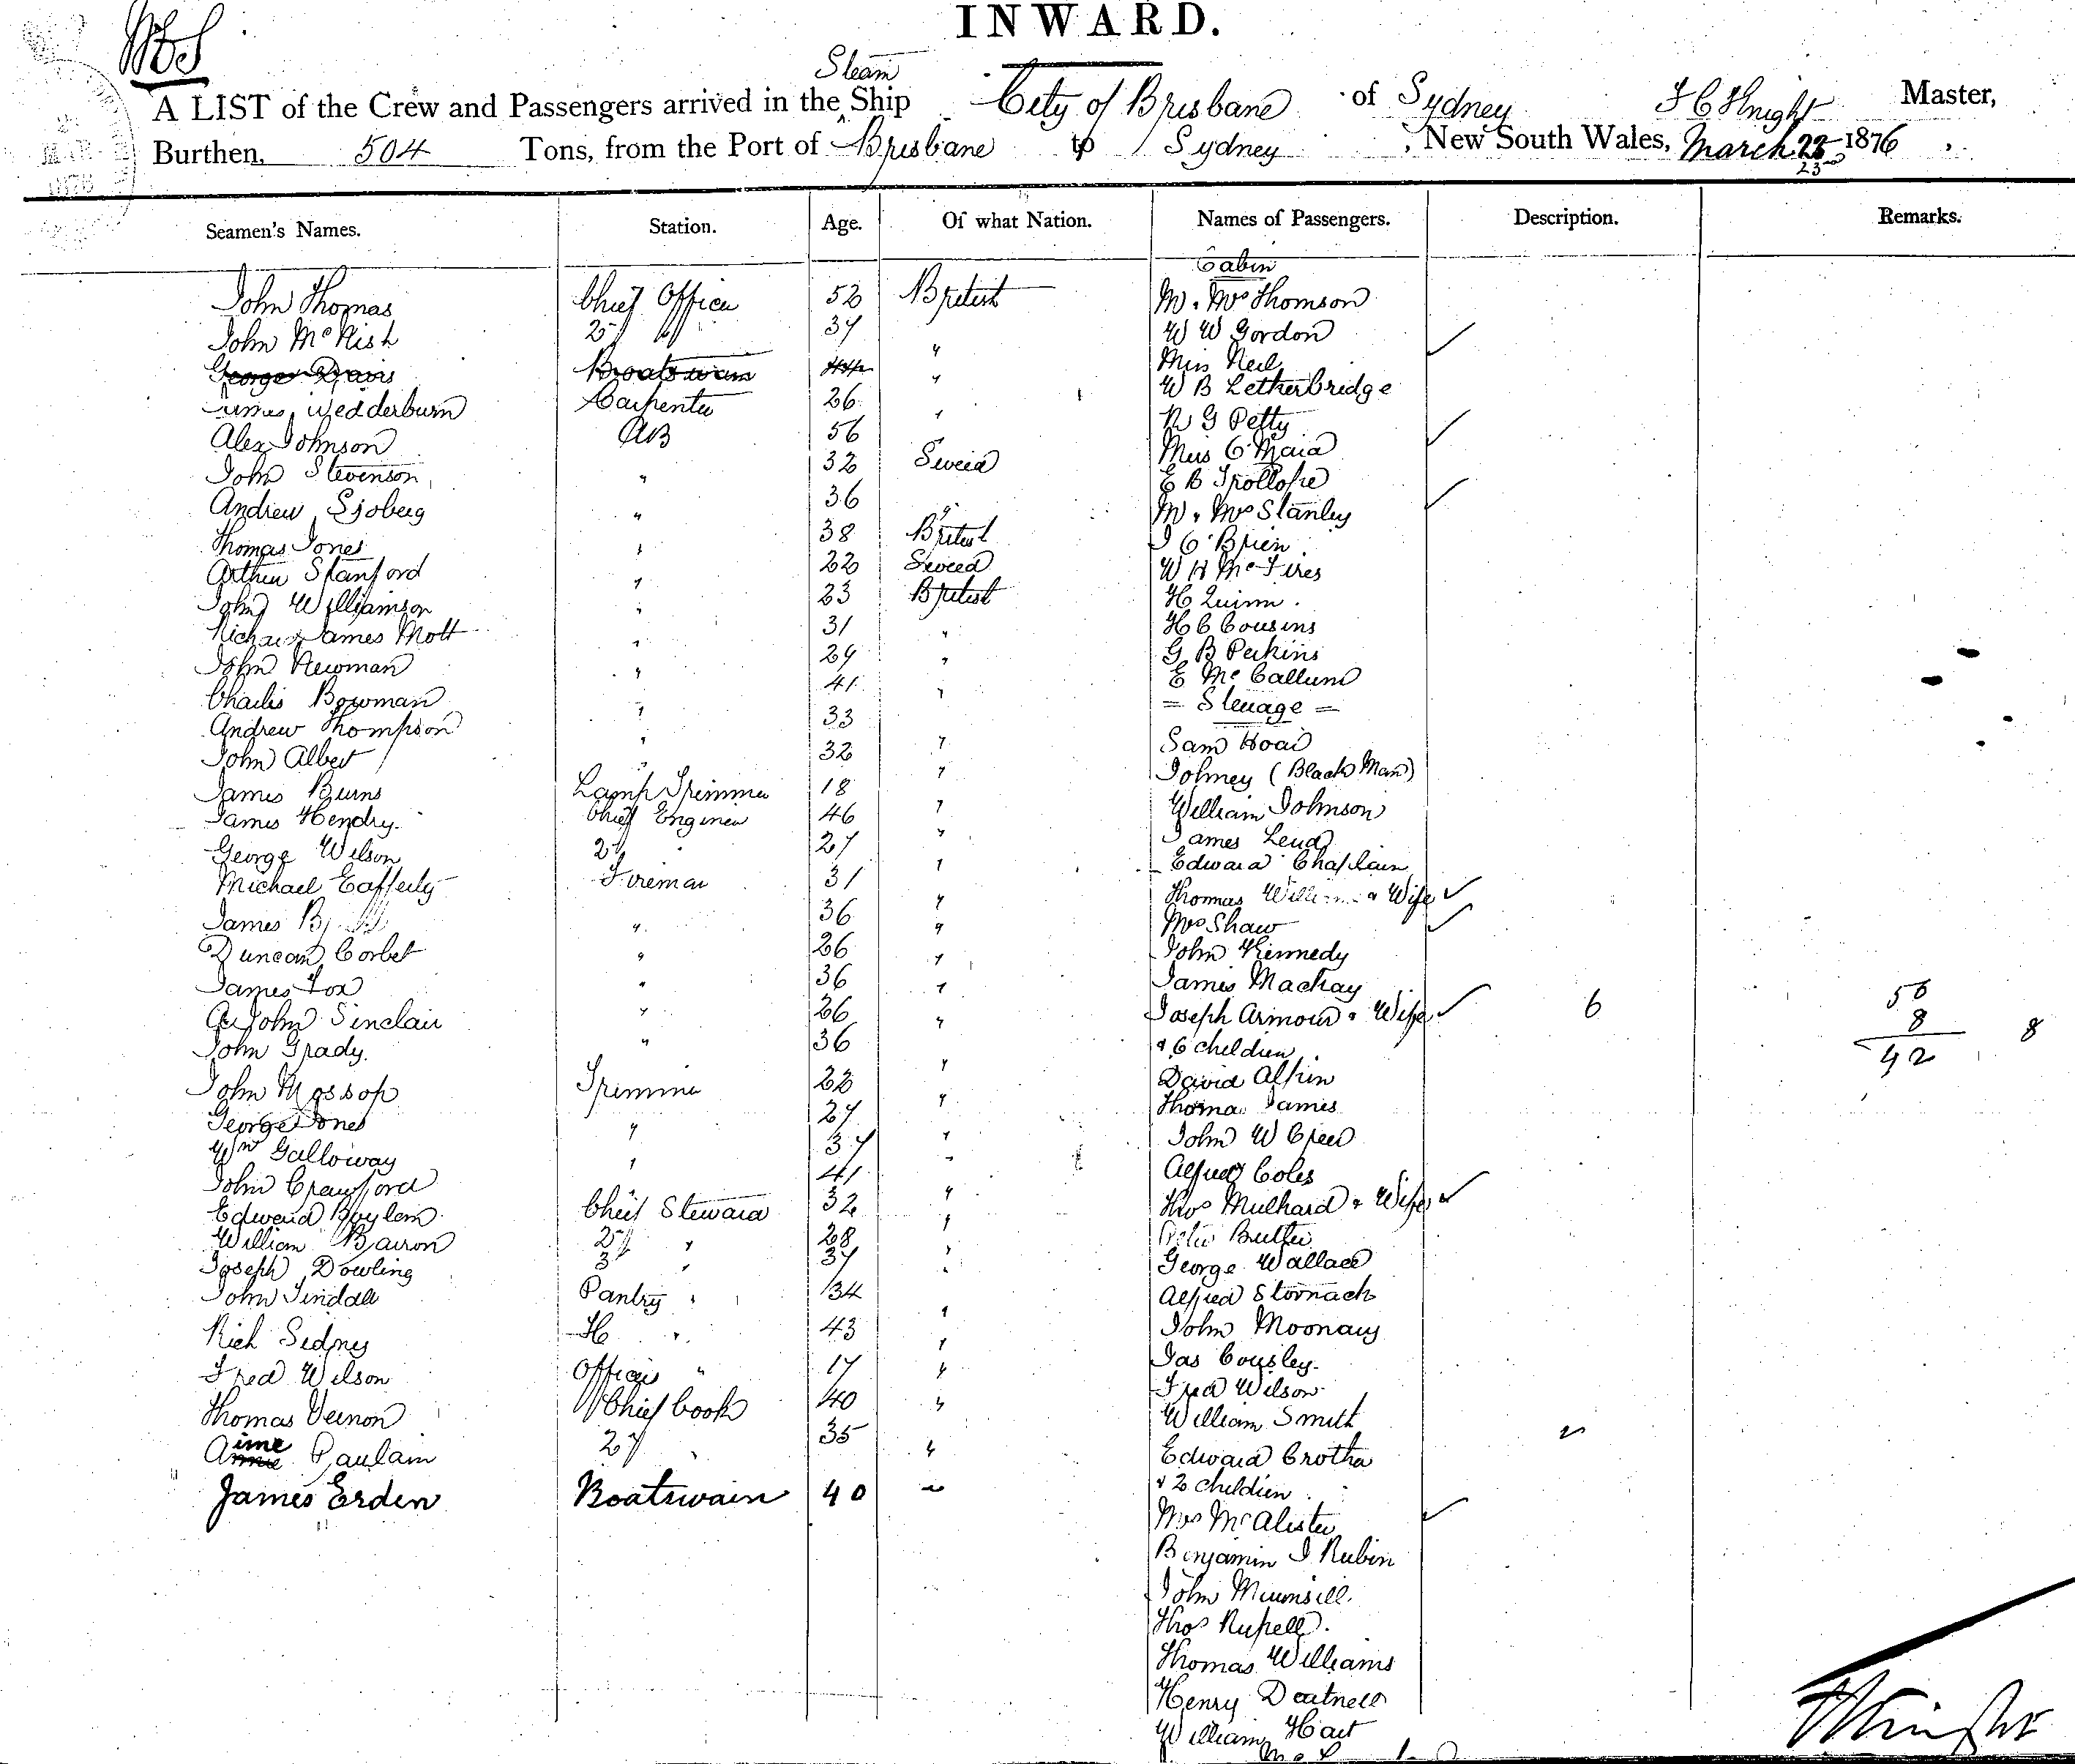 INWARD.
Steam
A LIST of the Crew and Passengers arrived in the Ship City of Brisbane of Sydney Master,
Burthen, 504 Tons, from the Port of Brisbane to Sydney, New South Wales, March 1876
23
Seamen's Names. Station. Age. Of what Nation. Names of Passengers. Description. Remarks.
Cabin
John Thomas Chief Officer 52 British M. Mrs Thomson
John McNish 2d 37 W W Gordon
George Davis Boatswain " Miss Neil
James Wedderburn Carpenter 26 " W B Letherbridge
Alex Johnson AB 56 " R G Petty
John Stevenson " 32 Swed
Andrew Sjoberg " 36 " E B Trollope
Thomas Jones " 38 British M. Mrs Stanley
Arthur Stanford " 22 Swed J O'Brien
John Williamson " 23 British
Richard James Mott " 31 " H Quinn.
John Newman " 29 " H C Cousins
Charles Bowman " 41 " G B Perkins
Andrew Thompson " 33 E McCallum
John Albert " 32 " = Steerage =
James Burns Lamp Trimmer 18 " Sam Hoad
James Hendry. Chief Engineer 46 " Johney (Black Man)
George Wilson 2d " 27 " William Johnson
Michael Cafferty Fireman 31 " James
James " 36 " Edward Chaplain
Duncan Corbet " 26 " Thomas & Wife
James Fox " 36 " Mrs Shaw
John Sinclair " 26 " John Kennedy
John Grady. " 36 James Mackay
Joseph Armour & Wife 6 56
8 8
42
& 6 children
John Mossop Trimmer 22 " David Alpin
George Jones " 27 " Thomas James
Wm Galloway " 37 " John W Creed
John Crawford " 41 " Alfred Coles
Edward Boylem Chief Steward 32 " Thos Mulhard & Wife
William Barron 2d " 28 " Butler
Joseph Dowling 3d " 37 " George Wallace
John Tindall Pantry " 34 " Alfred Stornach
Rich Sidney " 43 " John Moonay
Fred Wilson Officers " 17 " Jas Cousley
Thomas Vernon Chief Cook 40 " Fred Wilson
Aime Paulain 2d " 35 " William Smith
Edward Crother 2
James Erden Boatswain 40 " & 2 children
Mrs McAlister
Benjamin J Rubin
John
Thos Russell.
Thomas Williams
Henry
William Hart